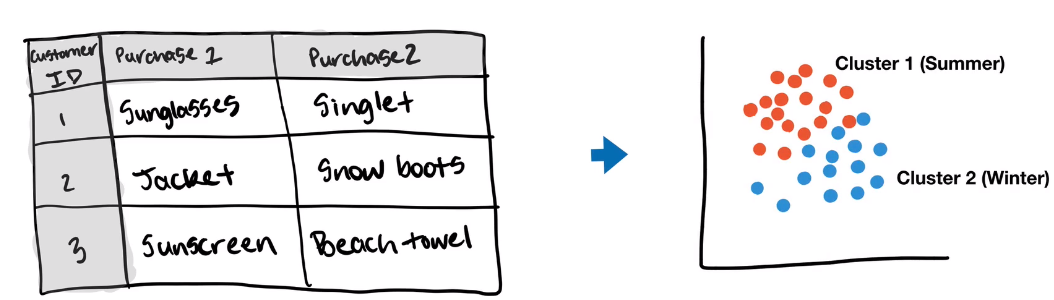 Customer ID Purchase 1 Purchase 2
1 Sunglasses Singlet
2 Jacket Snow boots
3 Sunscreen Beach towel
Cluster 1 (Summer)
Cluster 2 (Winter)